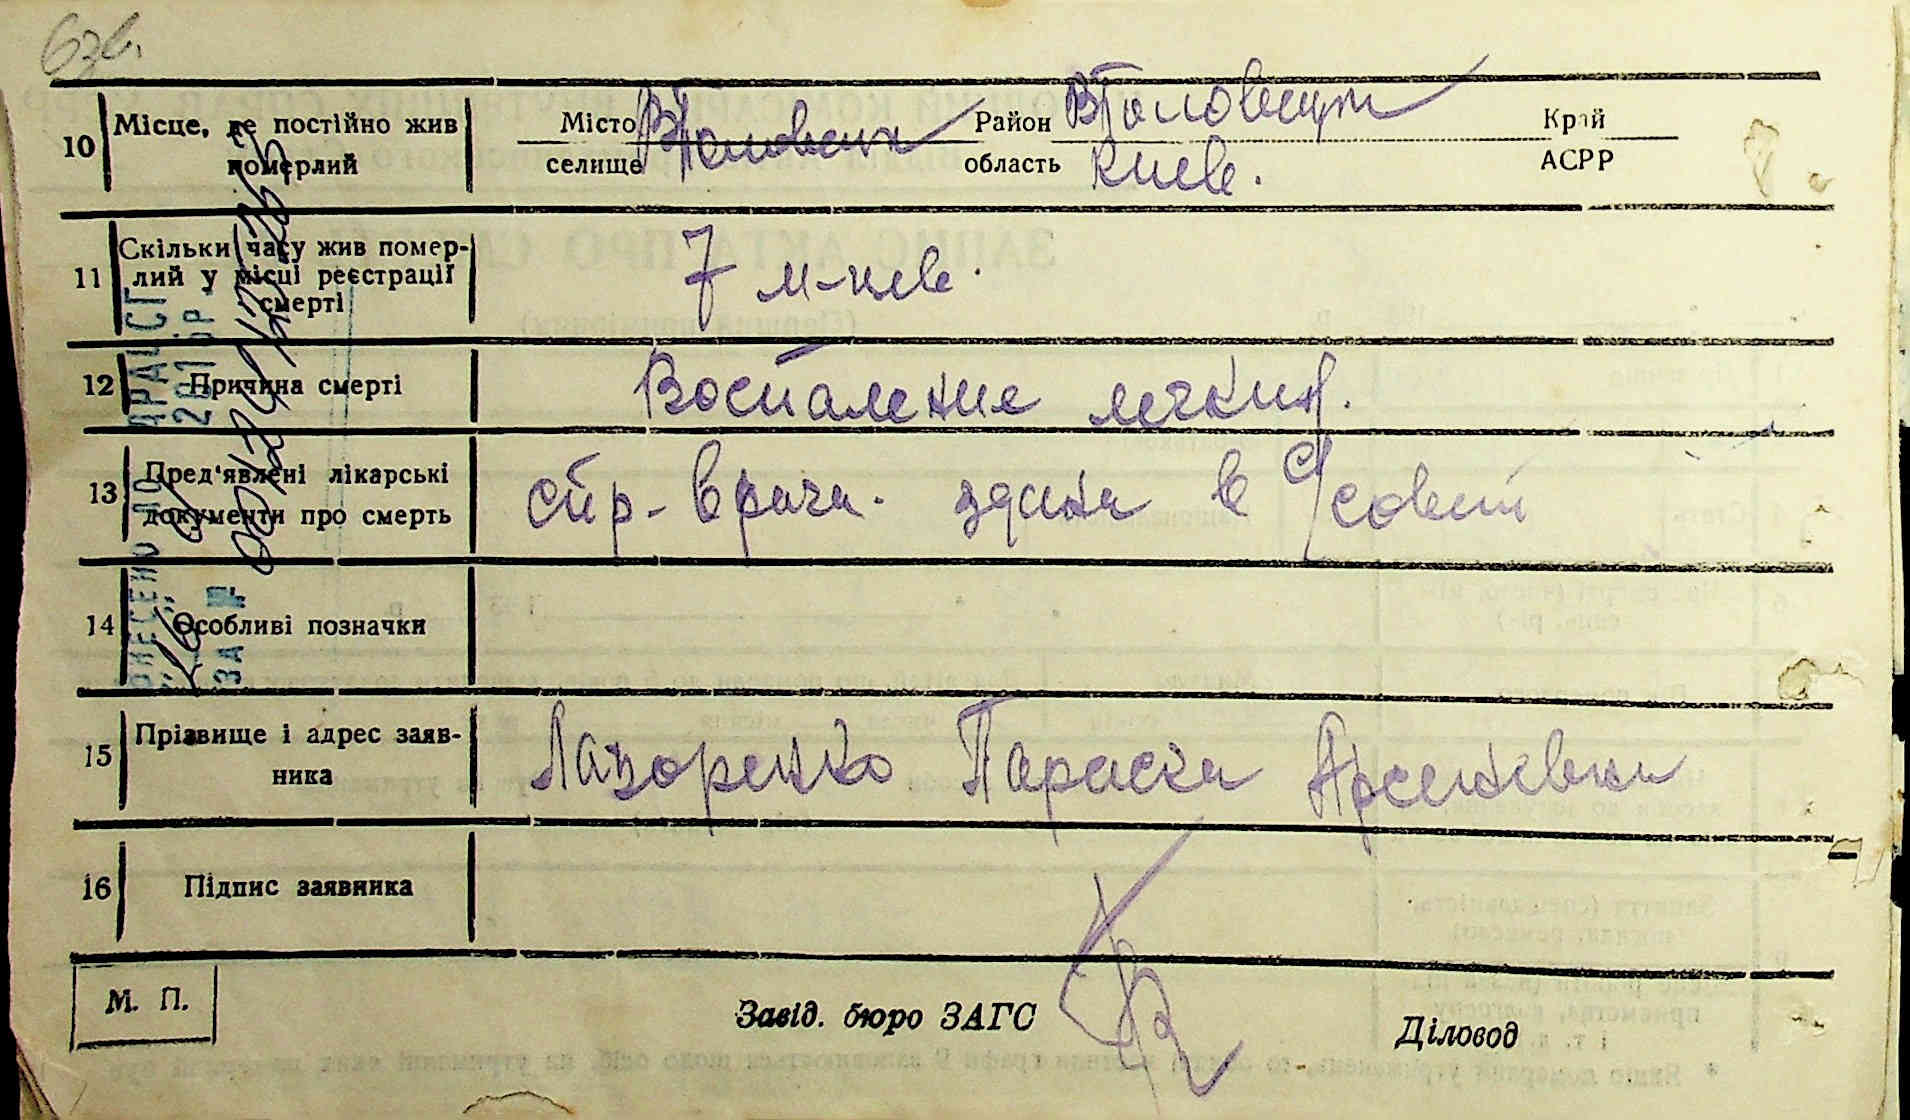 63в.
10 Місце, де постійно жив померлий Місто селище В Половецк Район область В Половецьк Київ. Край АСРР
11 Скільки часу жив помер-
лий у місці реєстрації
смерті 7 м-цев.
12 Причина смерті Воспаление легких.
13 Пред'явлені лікарські
документи про смерть спр-врача. здана в с/совет
14 Особливі позначки
15 Прізвище і адрес заяв-
ника Лазоренко Параска Арсеніевна
16 Підпис заявника
М. П.
Завід. бюро ЗАГС
Діловод
ВНЕСЕНО ДО ДРАЦСГ
"26" 201 р.
ЗА №